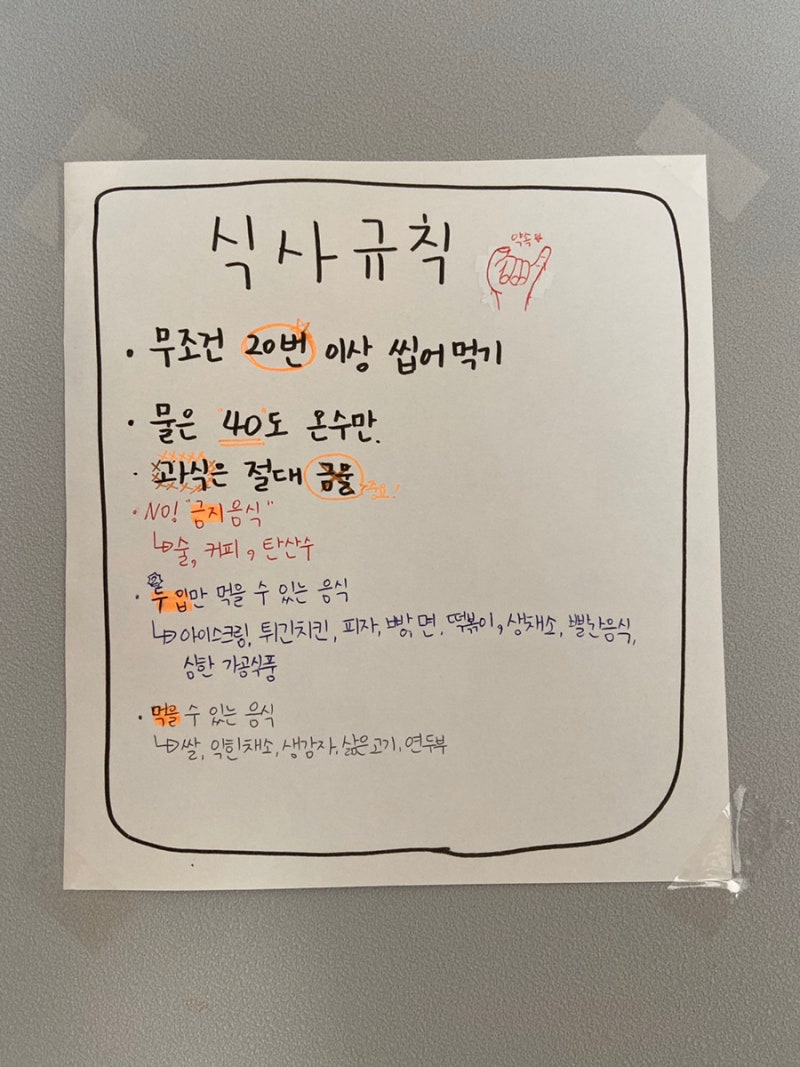 식사규칙
약속
• 무조건 20번 이상 씹어먹기
• 물은 40도 온수만.
• 과식은 절대 금물
중요!
• NO! "금지음식"
↳술, 커피, 탄산수
• 두입만 먹을 수 있는 음식
↳아이스크림, 튀긴치킨, 피자, 빵, 면, 떡볶이, 생채소, 빨간음식,
심한 가공식품
• 먹을 수 있는 음식
↳쌀, 익힌채소, 생감자, 삶은고기, 연두부